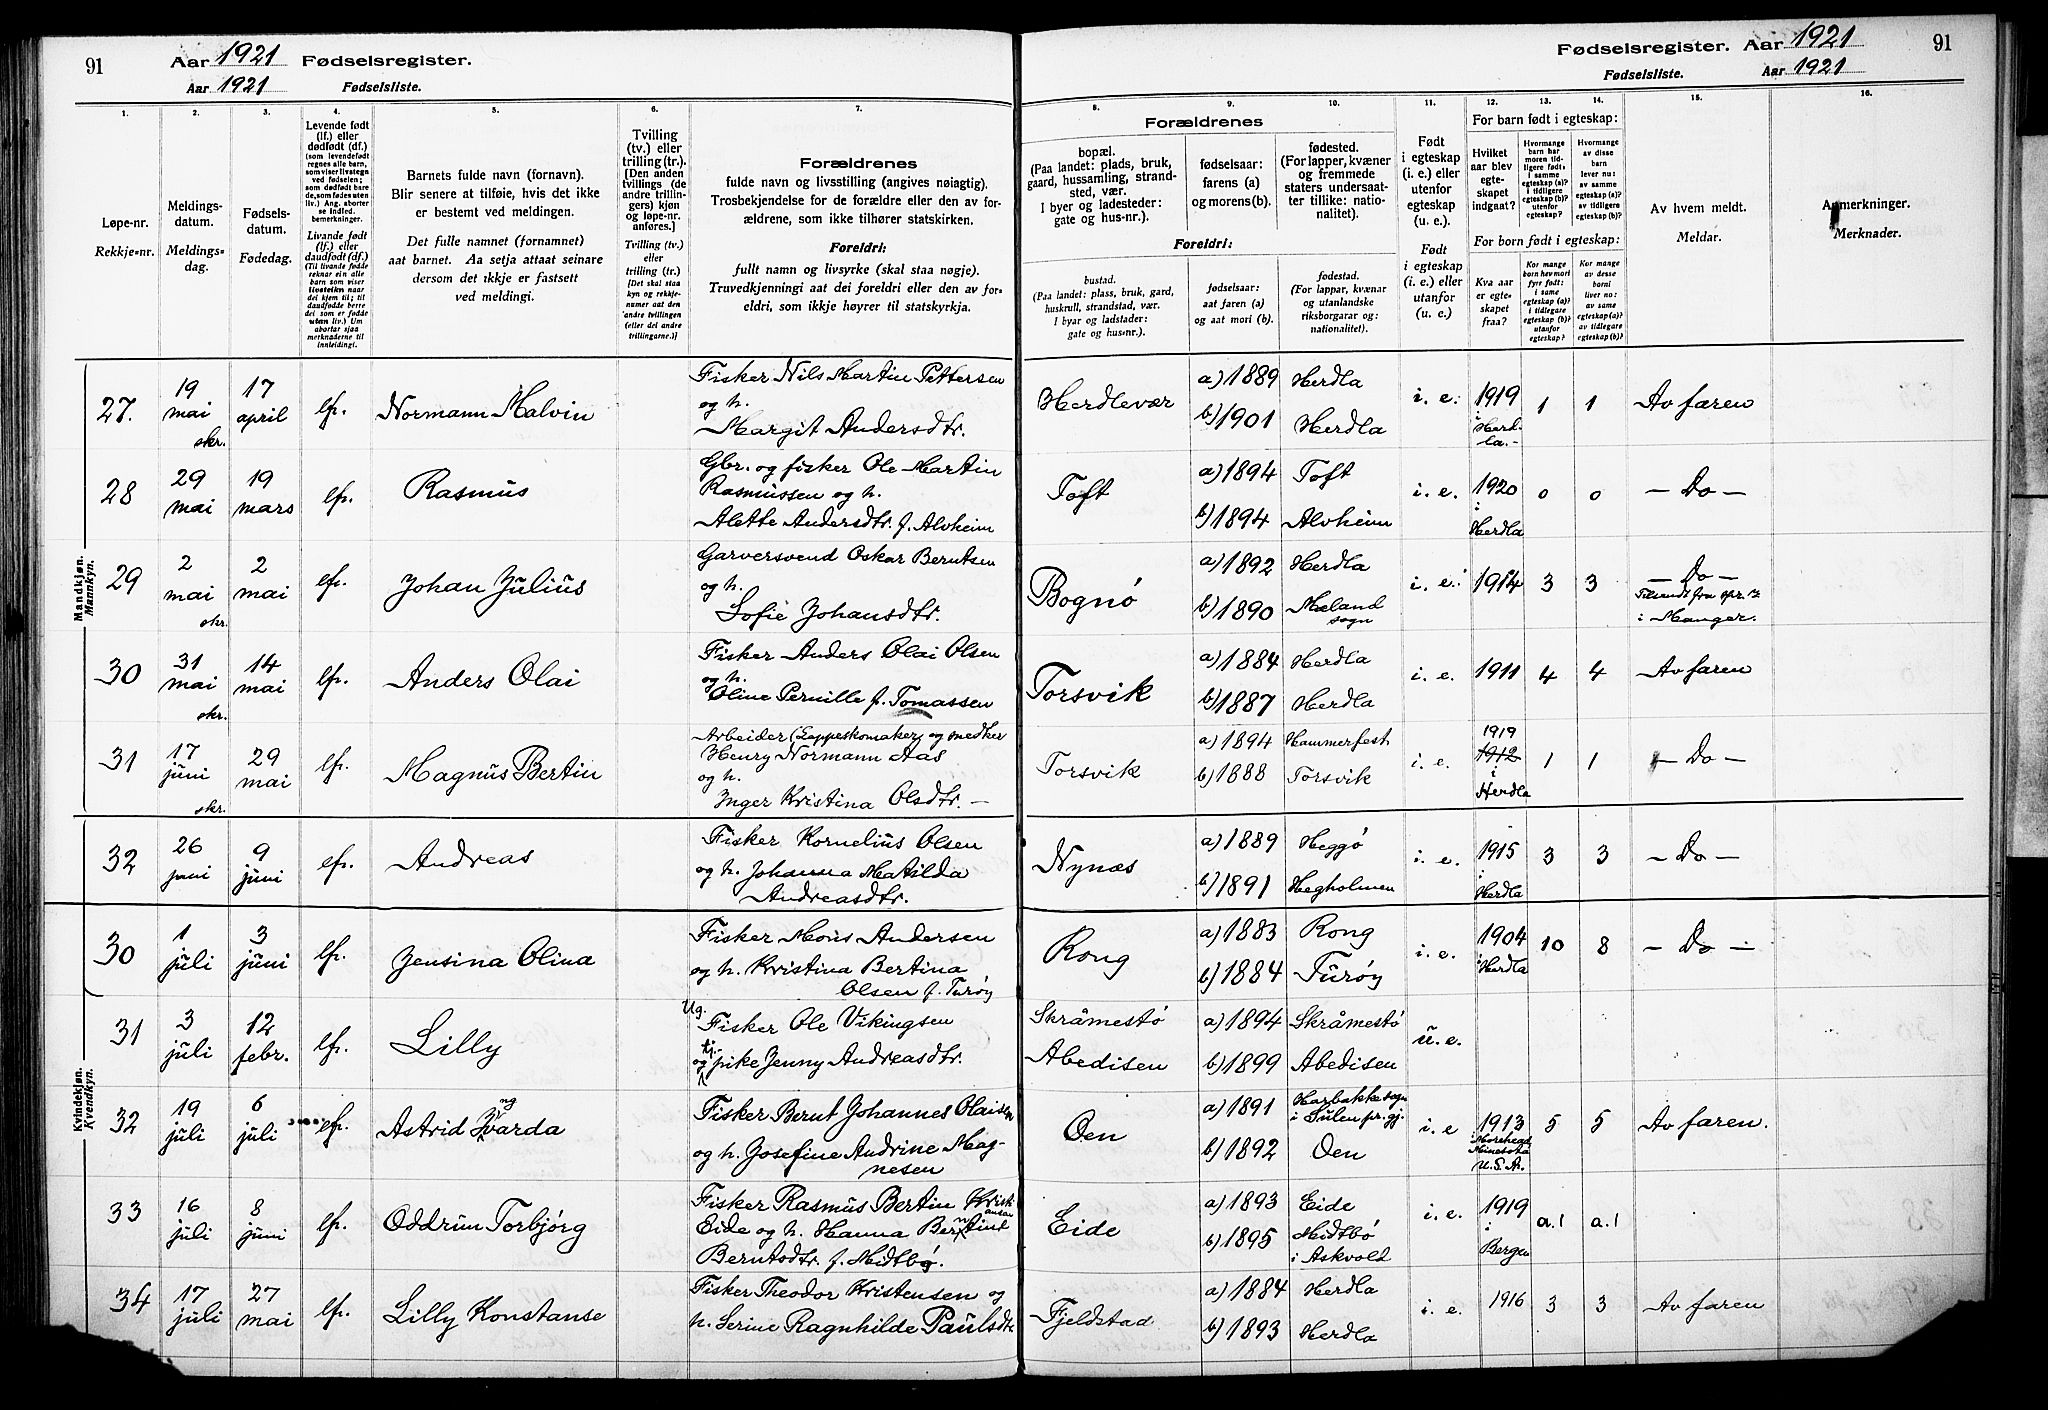 91
Aar 1921 Fødselsregister.
Aar 1921 Fødselsliste.
Fødselsregister. Aar 1921
Fødselsliste. Aar 1921
91
1. 2. 3. 4. 5. 6. 7. 8. 9. 10. 11. 12. 13. 14. 15. 16.
Løpe-nr.
Rekkje-nr.
Meldings-
datum.
Meldings-
dag.
Fødsels-
datum.
Fødedag.
Levende født
(lf.) eller
dødfødt (df.)
(som levendefødt
regnes alle barn,
som viser livstegn
ved fødselen;
som dødfødt bare
de, som fødes uten
liv.) Ang. aborter
se indled.
bemerkninger.
Livande født
(lf.) eller
daudfødt (df.)
(Til livande fødde
reknar ein alle
barn som viser
livsteikn naar
dei kjem til; til
daudfødde berre
dei som er fødde
utan liv.) Um
abortar sjaa
merknaderne til
innleidingi.
Barnets fulde navn (fornavn).
Blir senere at tilføie, hvis det ikke
er bestemt ved meldingen.
Det fulle namnet (fornamnet)
aat barnet. Aa setja attaat seinare
dersom det ikkje er fastsett
ved meldingi.
Tvilling
(tv.) eller
trilling (tr.).
[Den anden
tvillings (de
andre trillin-
gers) kjøn
og løpe-nr.
anføres.]
Tvilling (tv.)
eller
trilling (tr.)
[Det skal staa
kyn og rekkje-
numer aat den
andre tvillingen
(eller dei andre
trillingarne.)]
Forældrenes
fulde navn og livsstilling (angives nøiagtig).
Trosbekjendelse for de forældre eller den av for-
ældrene, som ikke tilhører statskirken.
Foreldri:
fullt namn og livsyrke (skal staa nøgje).
Truvedkjenningi aat dei foreldri eller den av for-
eldri, som ikkje høyrer til statskyrkja.
Forældrenes
bopæl.
(Paa landet: plads, bruk,
gaard, hussamling, strand-
sted, vær.
I byer og ladesteder:
gate og hus-nr.).
fødselsaar:
farens (a)
og morens (b).
fødested.
(For lapper, kvæner
og fremmede
staters undersaat-
ter tillike: natio-
nalitet).
Foreldri:
bustad.
(Paa landet: plass, bruk, gard,
huskrull, strandstad, vær.
I byar og ladstader:
gate og hus-nr.).
fødselsaar:
aat faren (a)
og aat mori (b).
fødestad.
(For lappar, kvænar
og utanlandske
riksborgarar og:
nationalitet).
Født
i egteskap
(i. e.) eller
utenfor
egteskap
(u. e.).
Født
i egteskap
(i. e.) eller
utanfor
(u. e.)
For barn født i egteskap:
Hvilket
aar blev
egte-
skapet
indgaat?
Hvormange
barn har
moren tid-
ligere født,
i samme
egteskap (a)?
i tidligere
egteskap (b)?
utenfor
egteskap?
Hvormange
av disse
barn
lever nu:
av samme
egteskap (a)?
av tidligere
egteskap (b)?
For born født i egteskap:
Kva aar
er egte-
skapet
fraa?
Kor mange
barn hev mori
fyrr født:
i same
egteskap (a)?
i tidlegare
egteskap (b)?
utanfor
egteskap?
Kor mange
av desse
borni
liver no:
av same
egteskap (a)?
av tidlegare
egteskap (b)?
Av hvem meldt.
Meldar.
Anmerkninger.
Merknader.
Mandkjøn.
Mannkyn.
27. 19 mai skr. 17 april lf. Normann Malvin
Fisker Nils Martin Pettersen
og h.
Margit Andersdtr.
Herdlevær a) 1889 Herdla i. e. 1919 i Herd-la. 1 1 Av faren
b) 1901 Herdla
28 29 mai 19 mars lf. Rasmus
Gbr. og fisker Ole Martin
Rasmussen og h.
Alette Andersdtr. f. Alvheim
Toft a) 1894 Toft i. e. 1920 i Herdla 0 0 — Do —
b) 1894 Alvheim
29 2 mai skr. 2 mai lf. Johan Julius
Garversvend Oskar Berntsen
og h.
Sofie Johansdtr.
Bognø a) 1892 Herdla i. e. 1914 3 3 — Do —
b) 1890 Meland sogn
i Manger.
30 31 mai skr. 14 mai lf. Anders Olai
Fisker Anders Olai Olsen
og h.
Oline Pernille f. Tomassen
Torsvik a) 1884 Herdla i. e. 1911 4 4 Av faren
b) 1887 Herdla
31 17 juni skr. 29 mai lf. Magnus Bertin
Arbeider (Lappeskomaker) og medker
Henry Normann Aas
og h.
Inger Kristina Olsdtr. —
Torsvik a) 1894 Hammerfest i. e. 1919 1912 i Herdla 1 1 — Do —
b) 1888 Torsvik
32 26 juni 9 juni lf. Andreas
Fisker Kornelius Olsen
og h. Johanna Matilda
Andreasdtr.
Nynæs a) 1889 Heggø i. e. 1915 i Herdla 3 3 — Do —
b) 1891 Hegholmen
Kvindekjøn.
Kvendkyn.
30 1 juli 3 juni lf. Jensina Olina
Fisker Mons Andersen
og h. Kristina Bertina
Olsen f. Turøy
Rong a) 1883 Rong i. e. 1904 i Herdla 10 8 — Do —
b) 1884 Turøy
31 3 juli 12 febr. lf. Lilly
Ug. Fisker Ole Vikingsen
og tj. pike Jenny Andreasdtr.
Skråmestø a) 1894 Skråmestø u. e.
Abedisen b) 1899 Abedisen
32 19 juli 6 juli lf. Astrid Ingvarda
Fisker Bernt Johannes Olaisen
og h. Josefine Andrine Mag-
nesen
Oen a) 1891 Harbakke sogn i Sulen pr.gj. i. e 1913 i Morehead Minesota U. S. A. 5 5 Av faren.
b) 1892 Oen
33 16 juli 8 juni lf. Oddrun Torbjørg
Fisker Rasmus Bertin Kristiansen
Eide og h. Hanna Berntine
Berntsdtr. f. Midtbø.
Eide a) 1893 Eide i. e. 1919 i Bergen a. 1 a. 1
b) 1895 Midtbø i Askvold
34 17 juli 27 mai lf. Lilly Konstanse
Fisker Theodor Kristensen og
h. Serine Ragnhilde Paulsdtr
Fjeldstad a) 1884 Herdla i. e. 1916 3 3 Av faren
b) 1893 Herdla